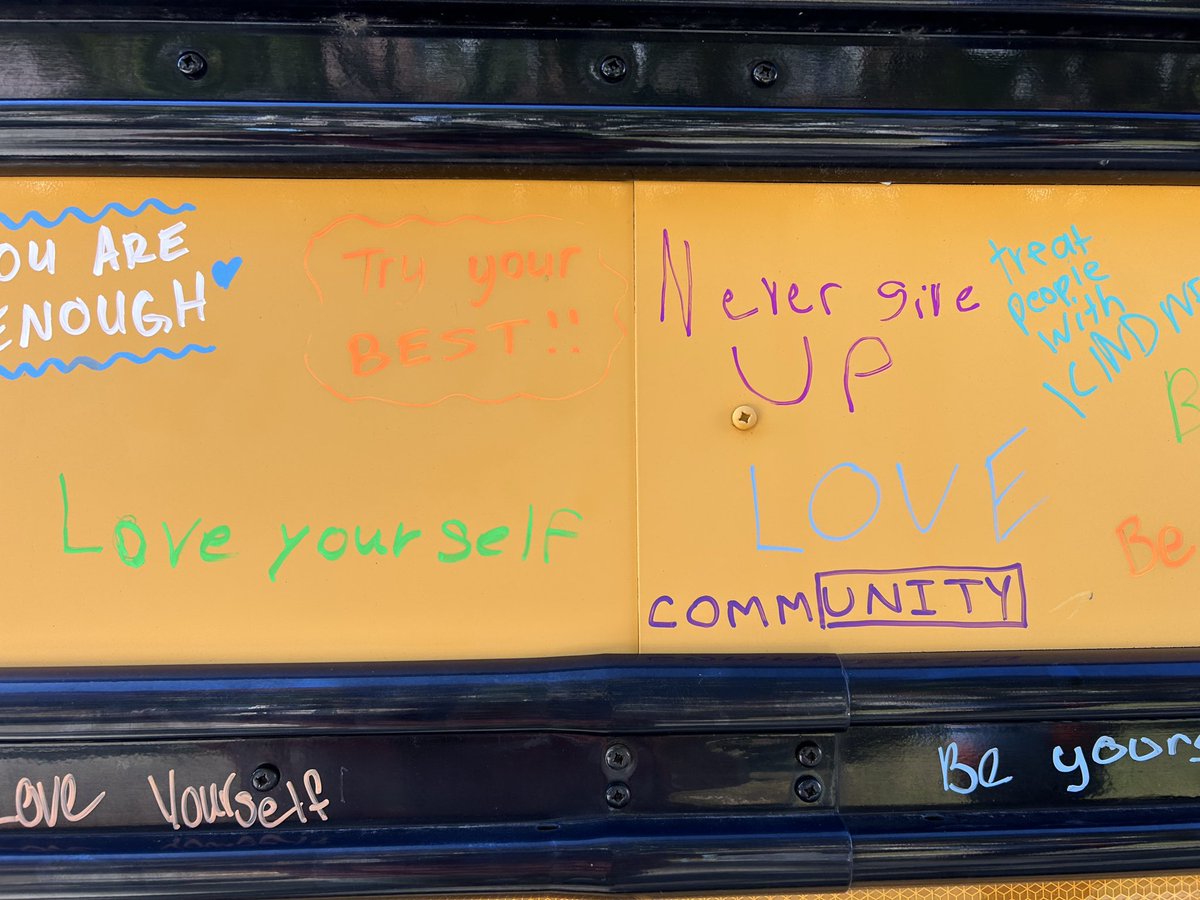 OU ARE
ENOUGH
Try your
BEST!!
Love yourself
Never give
UP
treat
people
with
KINDNE
LOVE
Be
COMMUNITY
Love Yourself
Be yours